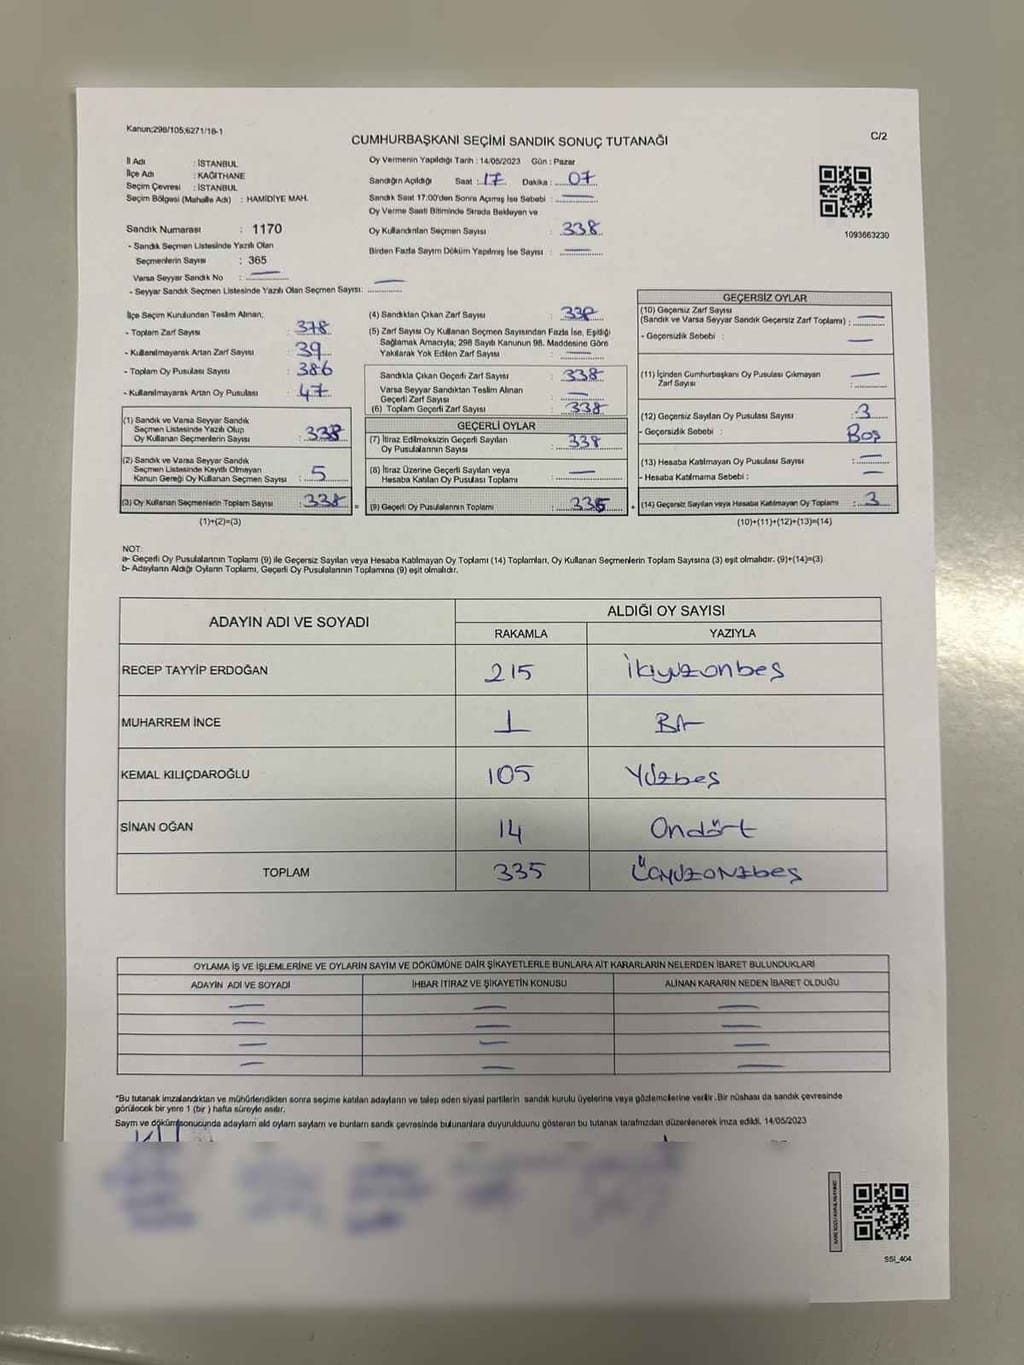 Kanun;298/105;6271/18-1
C/2
CUMHURBAŞKANI SEÇİMİ SANDIK SONUÇ TUTANAĞI
İl Adı : İSTANBUL
İlçe Adı : KAĞITHANE
Seçim Çevresi : İSTANBUL
Seçim Bölgesi (Mahalle Adı) : HAMİDİYE MAH.
Sandık Numarası : 1170
- Sandık Seçmen Listesinde Yazılı Olan
Seçmenlerin Sayısı : 365
Varsa Seyyar Sandık No : —
- Seyyar Sandık Seçmen Listesinde Yazılı Olan Seçmen Sayısı: —
Oy Vermenin Yapıldığı Tarih : 14/05/2023 Gün : Pazar
Sandığın Açıldığı Saat : 17 Dakika : 07
Sandık Saat 17.00'den Sonra Açılmış İse Sebebi : —
Oy Verme Saati Bitiminde Sırada Bekleyen ve
Oy Kullandırılan Seçmen Sayısı : 338
Birden Fazla Sayım Döküm Yapılmış İse Sayısı : —
1093663230
İlçe Seçim Kurulundan Teslim Alınan;
- Toplam Zarf Sayısı : 378
- Kullanılmayarak Artan Zarf Sayısı : 39
- Toplam Oy Pusulası Sayısı : 386
- Kullanılmayarak Artan Oy Pusulası : 47
(1) Sandık ve Varsa Seyyar Sandık
Seçmen Listesinde Yazılı Olup
Oy Kullanan Seçmenlerin Sayısı :
(2) Sandık ve Varsa Seyyar Sandık
Seçmen Listesinde Kayıtlı Olmayan
Kanun Gereği Oy Kullanan Seçmen Sayısı : 5
(3) Oy Kullanan Seçmenlerin Toplam Sayısı : 338
(1)+(2)=(3)
(4) Sandıktan Çıkan Zarf Sayısı :
(5) Zarf Sayısı Oy Kullanan Seçmen Sayısından Fazla İse, Eşitliği
Sağlamak Amacıyla; 298 Sayılı Kanunun 98. Maddesine Göre
Yakılarak Yok Edilen Zarf Sayısı : —
Sandıkta Çıkan Geçerli Zarf Sayısı : 338
Varsa Seyyar Sandıktan Teslim Alınan
Geçerli Zarf Sayısı : —
(6) Toplam Geçerli Zarf Sayısı : 338
GEÇERLİ OYLAR
(7) İtiraz Edilmeksizin Geçerli Sayılan
Oy Pusulalarının Sayısı :
(8) İtiraz Üzerine Geçerli Sayılan veya
Hesaba Katılan Oy Pusulası Toplamı : —
= (9) Geçerli Oy Pusulalarının Toplamı : 335 +
GEÇERSİZ OYLAR
(10) Geçersiz Zarf Sayısı
(Sandık ve Varsa Seyyar Sandık Geçersiz Zarf Toplamı) : —
- Geçersizlik Sebebi : —
(11) İçinden Cumhurbaşkanı Oy Pusulası Çıkmayan
Zarf Sayısı : —
(12) Geçersiz Sayılan Oy Pusulası Sayısı : 3
- Geçersizlik Sebebi : Boş
(13) Hesaba Katılmayan Oy Pusulası Sayısı : —
- Hesaba Katılmama Sebebi : —
(14) Geçersiz Sayılan veya Hesaba Katılmayan Oy Toplamı : 3
(10)+(11)+(12)+(13)=(14)
NOT:
a- Geçerli Oy Pusulalarının Toplamı (9) ile Geçersiz Sayılan veya Hesaba Katılmayan Oy Toplamı (14) Toplamları, Oy Kullanan Seçmenlerin Toplam Sayısına (3) eşit olmalıdır. (9)+(14)=(3)
b- Adayların Aldığı Oyların Toplamı, Geçerli Oy Pusulalarının Toplamına (9) eşit olmalıdır.
ADAYIN ADI VE SOYADI
ALDIĞI OY SAYISI
RAKAMLA YAZIYLA
RECEP TAYYİP ERDOĞAN 215 ikiyüzonbeş
MUHARREM İNCE 1 Bir
KEMAL KILIÇDAROĞLU 105 Yüzbeş
SİNAN OĞAN 14 Ondört
TOPLAM 335 Üçyüzotuzbeş
OYLAMA İŞ VE İŞLEMLERİNE VE OYLARIN SAYIM VE DÖKÜMÜNE DAİR ŞİKAYETLERLE BUNLARA AİT KARARLARIN NELERDEN İBARET BULUNDUKLARI
ADAYIN ADI VE SOYADI İHBAR İTİRAZ VE ŞİKAYETİN KONUSU ALINAN KARARIN NEDEN İBARET OLDUĞU
— — —
— — —
— — —
— — —
*Bu tutanak imzalandıktan ve mühürlendikten sonra seçime katılan adayların ve talep eden siyasi partilerin sandık kurulu üyelerine veya gözlemcilerine verilir. Bir nüshası da sandık çevresinde
görülecek bir yere 1 (bir ) hafta süreyle asılır.
Sayım ve döküm sonucunda adayların ald oyların sayların ve bunların sandık çevresinde bulunanlara duyurulduunu gösteren bu tutanak tarafımızdan düzenlenerek imza edildi. 14/05/2023
SSİ_404